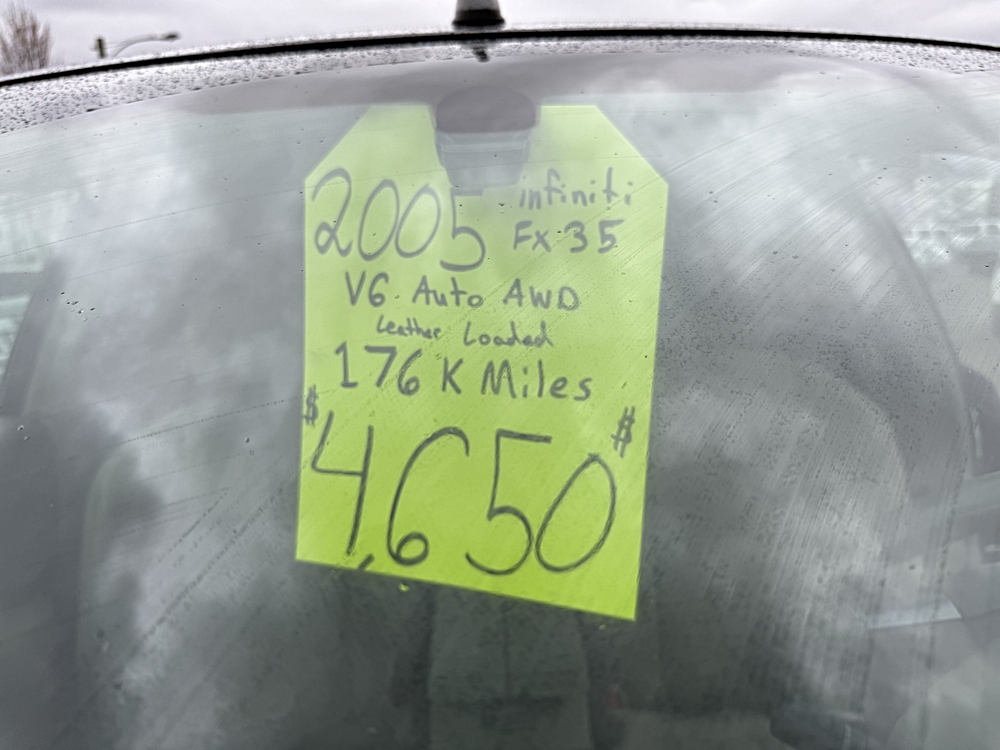 2005 infiniti
FX35
V6 Auto AWD
Leather Loaded
176 K Miles
$4,650$